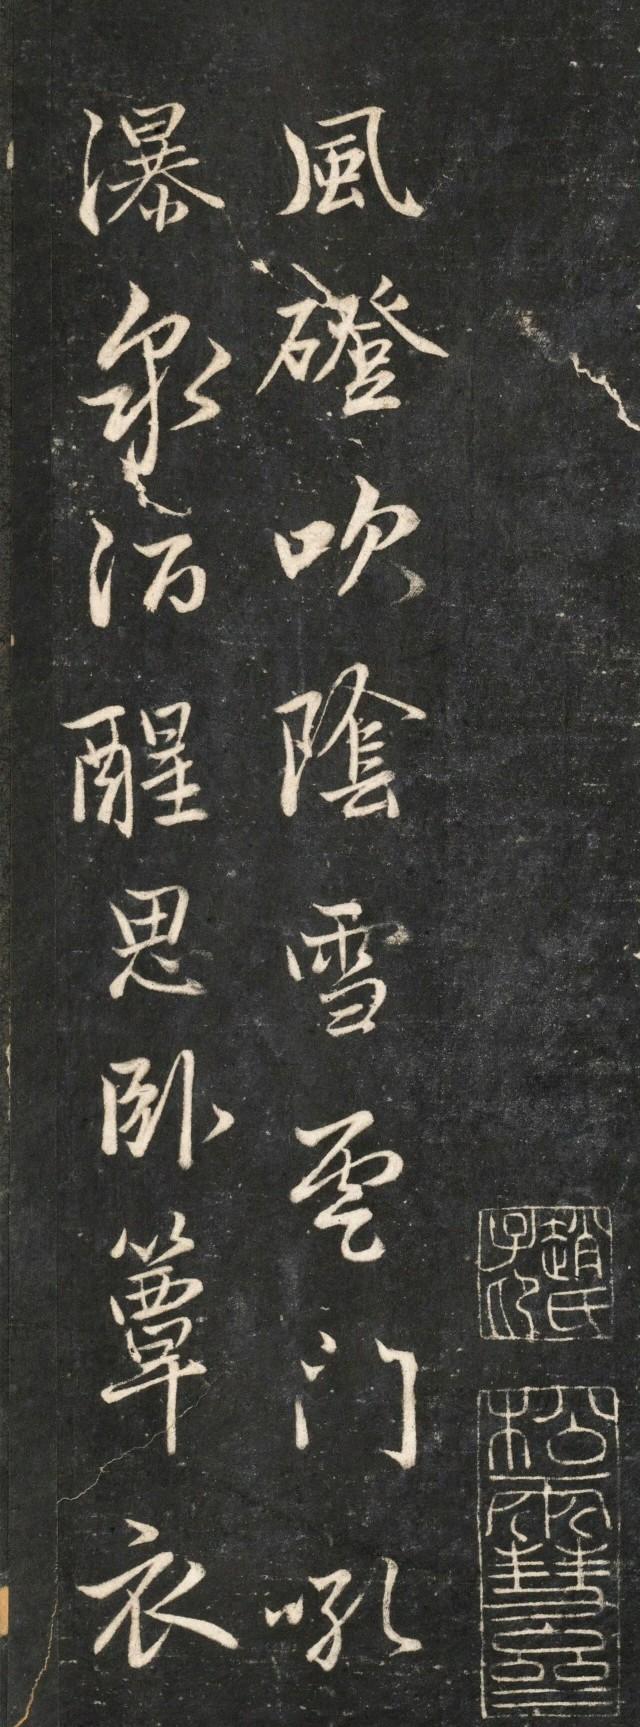 趙氏子昂
松雪齋
風磴吹陰雪雲門吼
瀑泉酒醒思卧簟衣